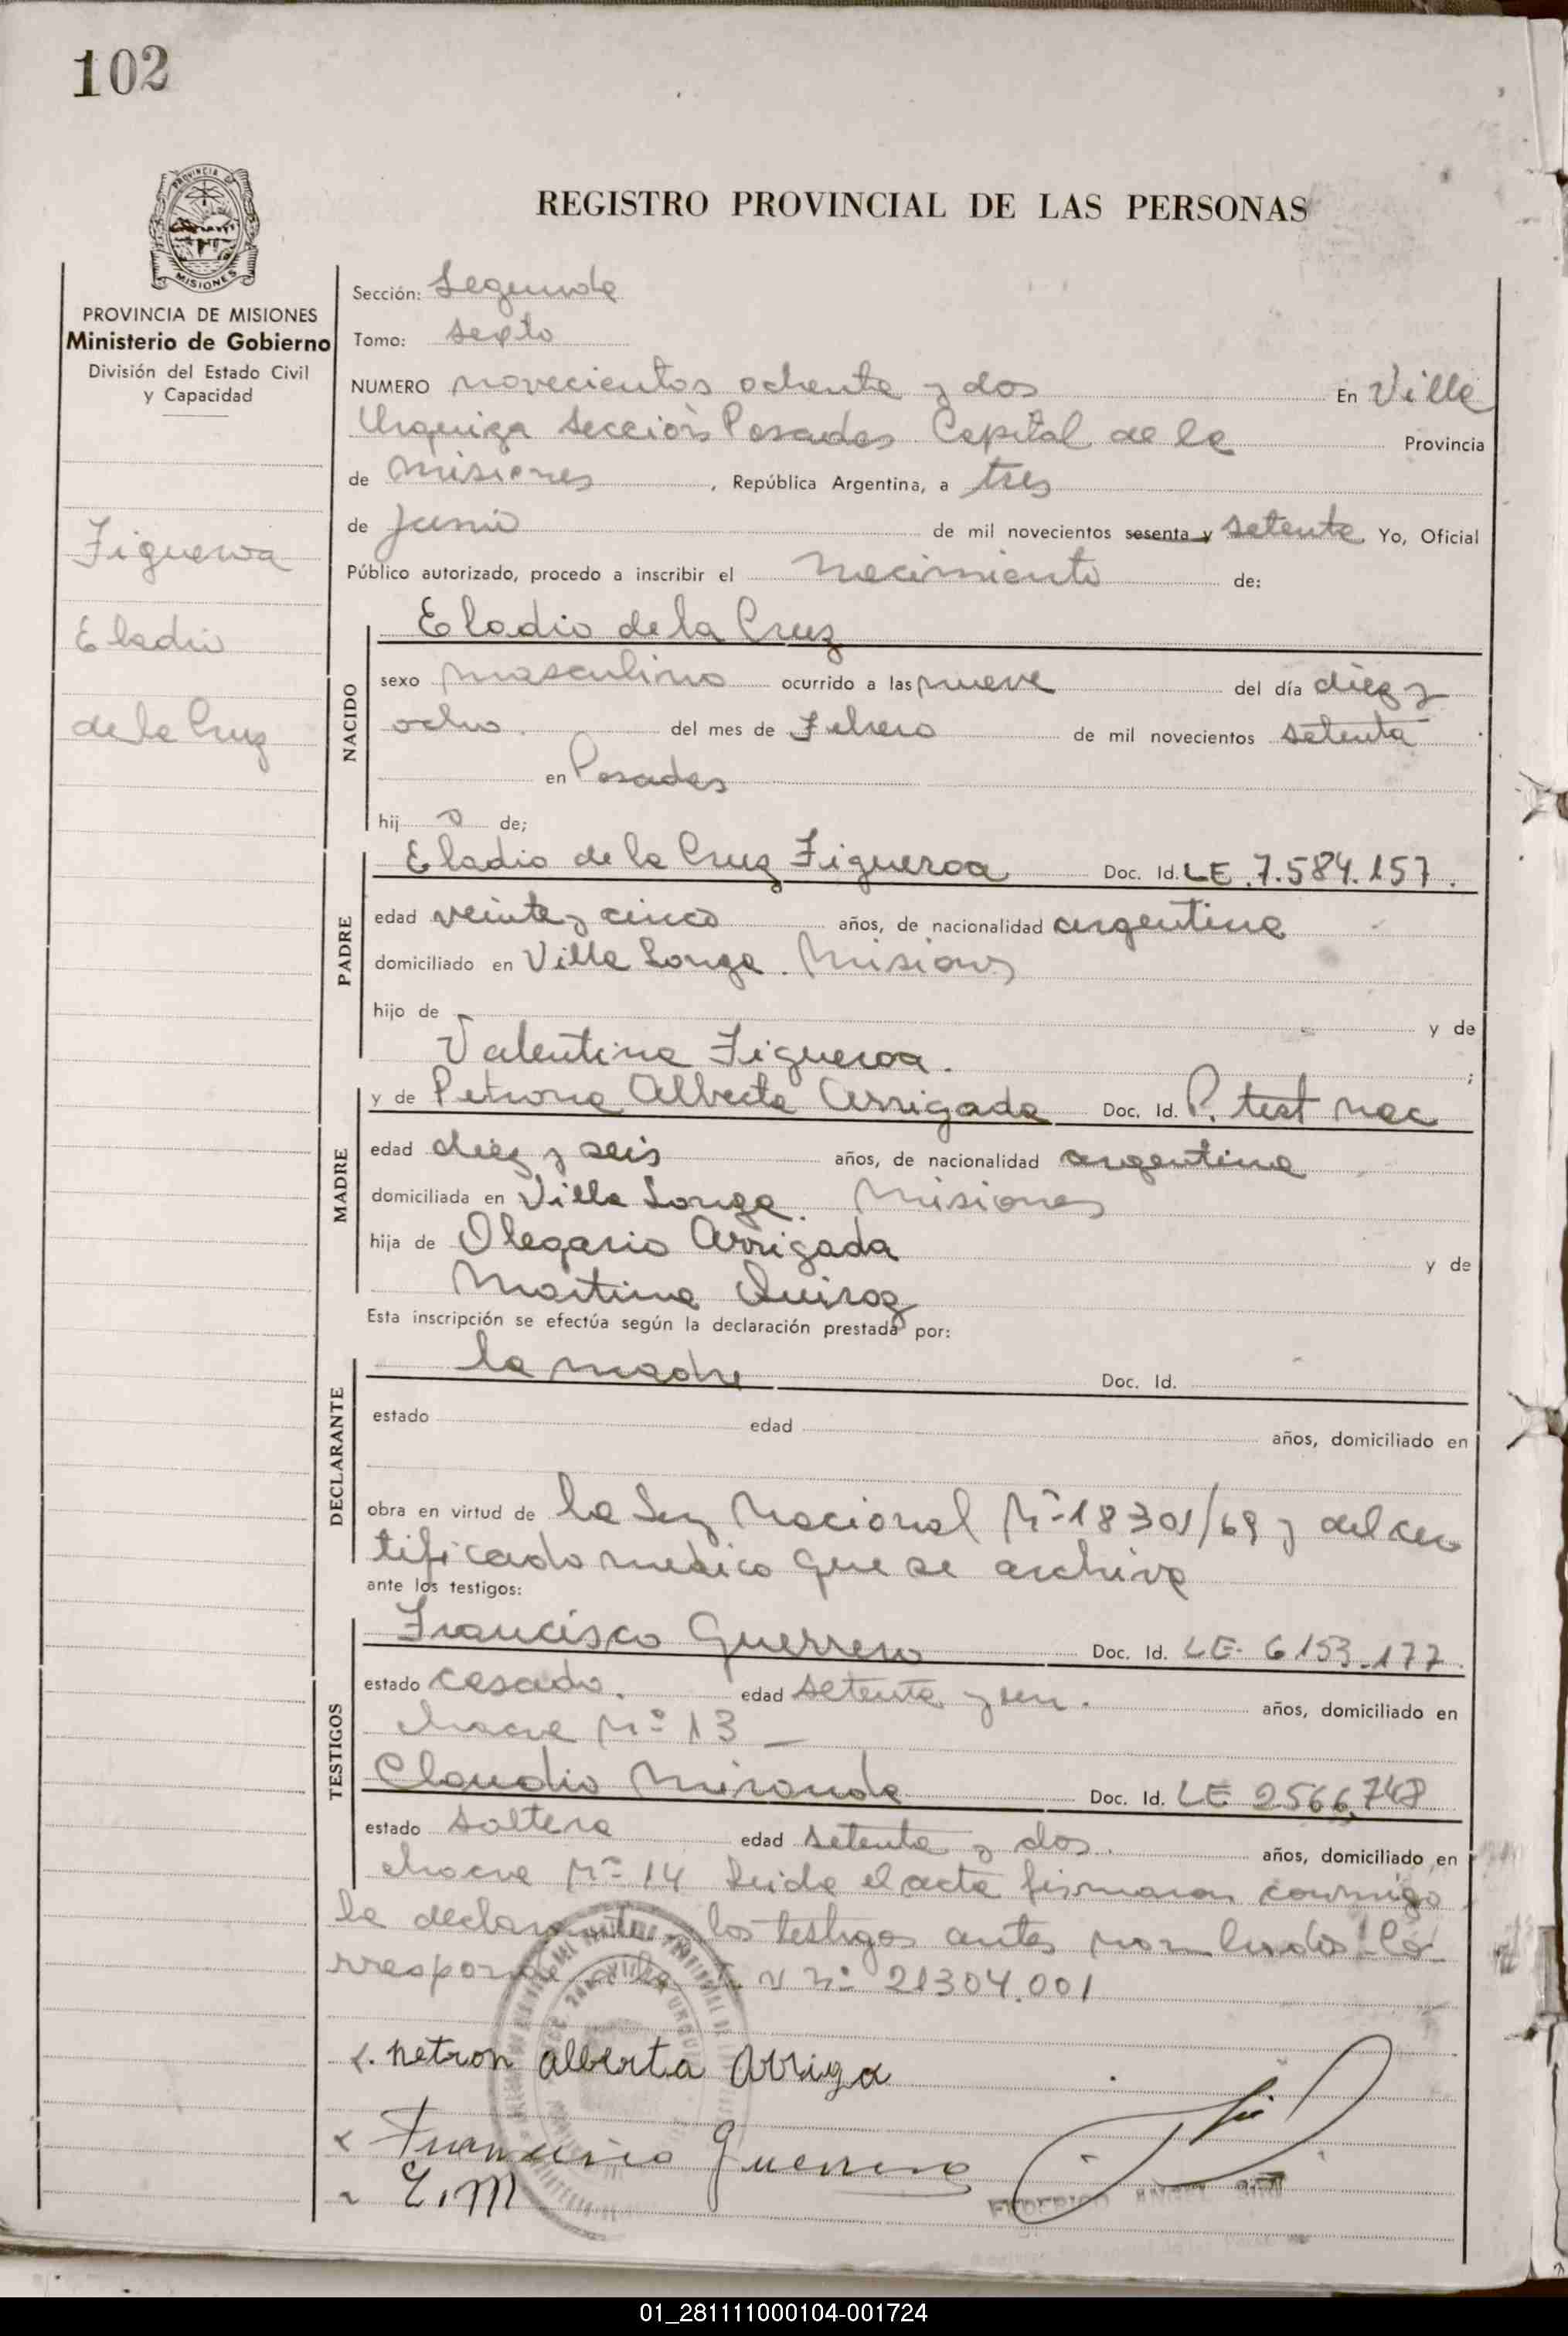 102
PROVINCIA DE
MISIONES
REGISTRO PROVINCIAL DE LAS PERSONAS
PROVINCIA DE MISIONES
Ministerio de Gobierno
División del Estado Civil
y Capacidad
Figueroa
Eladio
de la Cruz
Sección: Segunda
Tomo: sexto
NUMERO novecientos ochenta y dos En Villa
Urquiza Sección Posadas Capital de la Provincia
de Misiones, República Argentina, a tres
de Junio de mil novecientos sesenta y setenta Yo, Oficial
Público autorizado, procedo a inscribir el Nacimiento de:
NACIDO
Eladio de la Cruz
sexo masculino ocurrido a las nueve del día diez y
ocho del mes de Febrero de mil novecientos setenta
en Posadas
hij o de;
PADRE
Eladio de la Cruz Figueroa Doc. Id. LE.7.584.157.
edad veinte y cinco años, de nacionalidad argentina
domiciliado en Villa Longa. Misiones
hijo de y de
Valentina Figueroa.;
MADRE
y de Petrona Alberta Arrigada Doc. Id. P. test nac
edad diez y seis años, de nacionalidad argentina
domiciliada en Villa Longa. Misiones
hija de Olegario Arrigada y de
Martina Quiroz
Esta inscripción se efectúa según la declaración prestada por:
DECLARANTE
la madre Doc. Id.
estado edad años, domiciliado en
obra en virtud de la Ley Nacional Nº 18301/69 y del cer
tificado medico que se archiva
ante los testigos:
TESTIGOS
Francisco Guerrero Doc. Id. LE. 6153.177.
estado casado. edad setenta y un. años, domiciliado en
chacra Nº 13 —
Claudio Miranda Doc. Id. LE 2566.748
estado soltero edad setenta y dos. años, domiciliado en
chacra Nº 14 Leida el acta firmaron conmigo
la declarante y los testigos antes nombrados. Co
rresponde Nº 21304.001
x. netron alberta Arriga
x Francisco Guerrero
C.M
FEDERICO ANGEL
01_281111000104-001724